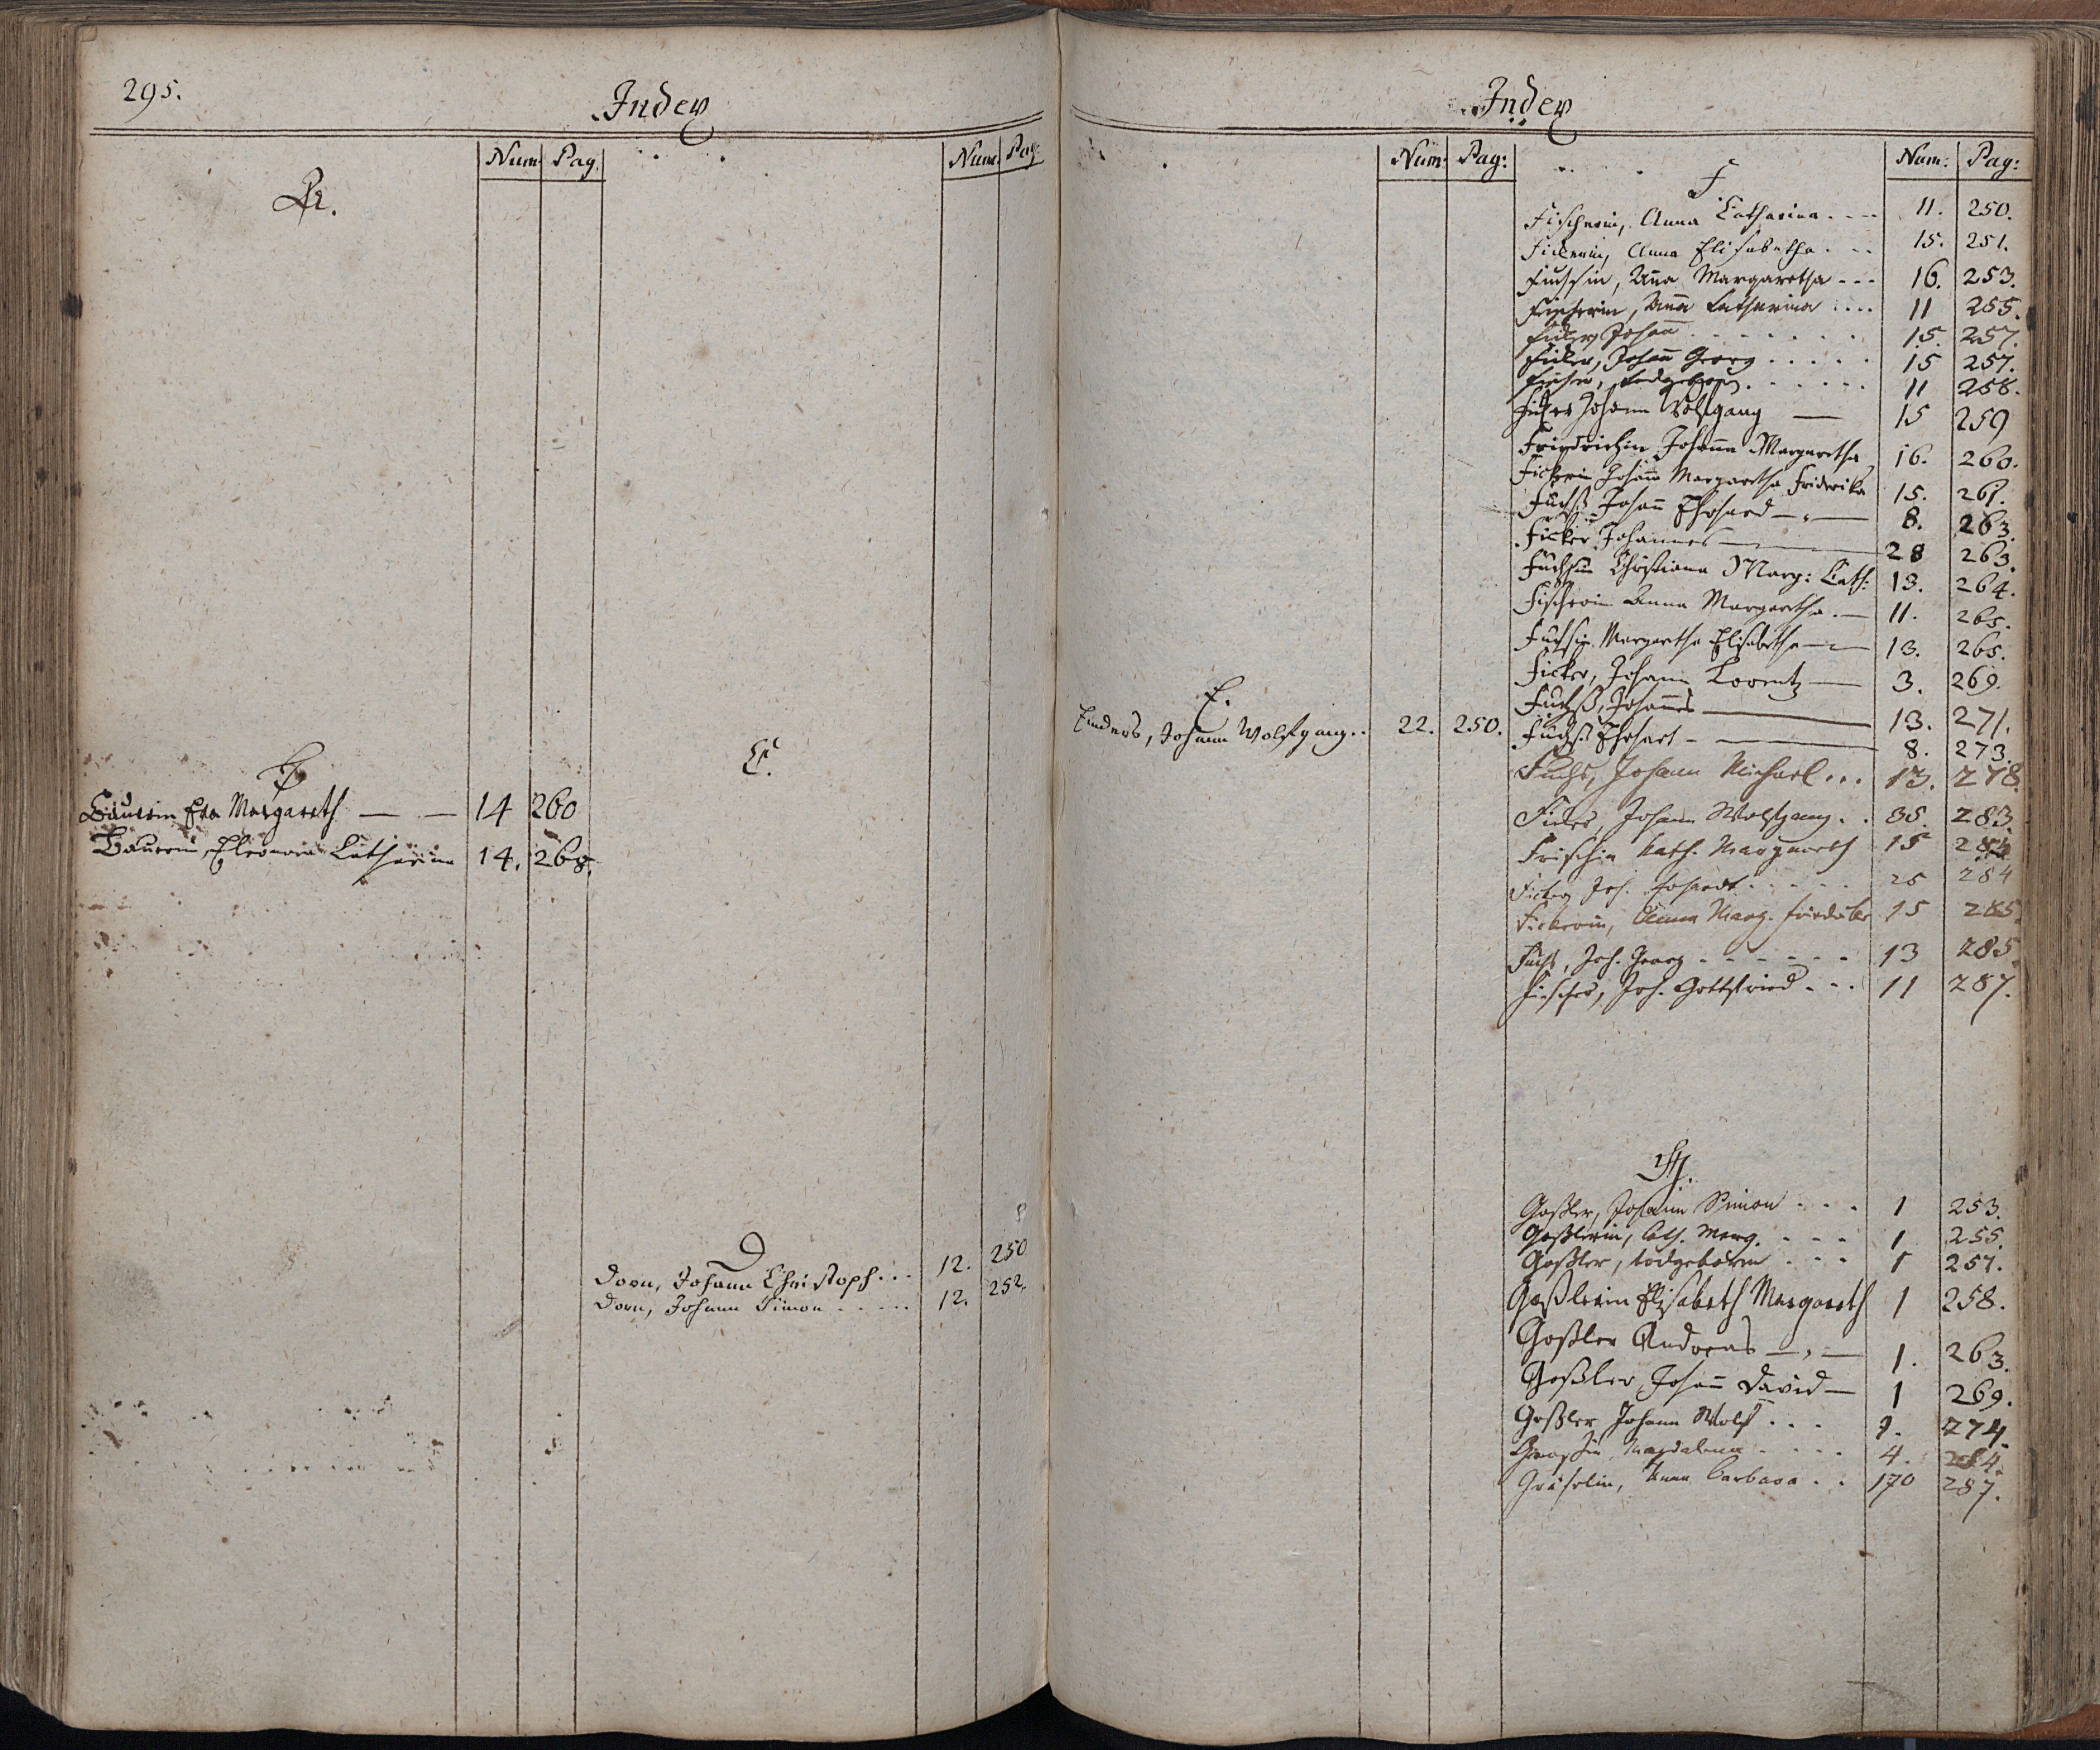 295.
Index
Num: Pag.
A.
B
Bauerin Eva Margareth — — 14 260
Bauerin, Eleonora Catharina 14. 268.
Num: Pag:
C.
D
Dorn, Johann Christoph... 12. 250
Dorn, Johann Simon ..... 12. 252.
Index
Num: Pag:
E.
Enders, Johann Wolfgang.. 22. 250.
Num: Pag:
F
Fischerin, Anna Catharina.... 11. 250.
Fickerin, Anna Elisabetha... 15. 251.
Fuchsin, Anna Margaretha --- 16. 253.
Fischerin, Anna Catharina .... 11 255.
Ficker, Johann ....... 15. 257.
Ficker, Johann Georg ..... 15 257.
Fischer, todgeboren ...... 11 258.
Ficker Johann Wolfgang — 15 259
Friedrichin Johanna Margaretha 16. 260.
Fickerin Johanna Margaretha Friderika 15. 261.
Fuchß Johann Ehrhard — 8. 263.
Ficker Johannes — 28 263.
Fuchsin Christiana Marg: Cath: 13. 264.
Fischerin Anna Margaretha. — 11. 265.
Fuchsin Margaretha Elisabetha — 13. 265.
Ficker, Johann Lorentz — 3. 269.
Fuchß, Johannes — 13. 271.
Fuchß Ehrhart — 8. 273.
Fuchs, Johann Michael... 13. 278.
Ficker, Johann Wolfgang.. 35. 283.
Frischin Kath. Margareth 15 284
Ficker Joh. Erhardt..... 25 284
Fickerin, Anna Marg. Friderike 15 285.
Fuchs, Joh. Georg ------ 13 285.
Fischer, Joh. Gottfried... 11 287.
G.
Goßler, Johann Simon ... 1 253.
Goßlerin, Cath. Marg. ... 1 255.
Goßler, todgeboren ... 1 257.
Goßlerin Elisabeth Margareth 1 258.
Goßler Andreas — 1. 263.
Goßler Johann David — 1 269.
Goßler Johann Wolf ... 1. 274.
Magdalena .... 4. 284.
Gräserlin, Anna Barbara .. 170 287.